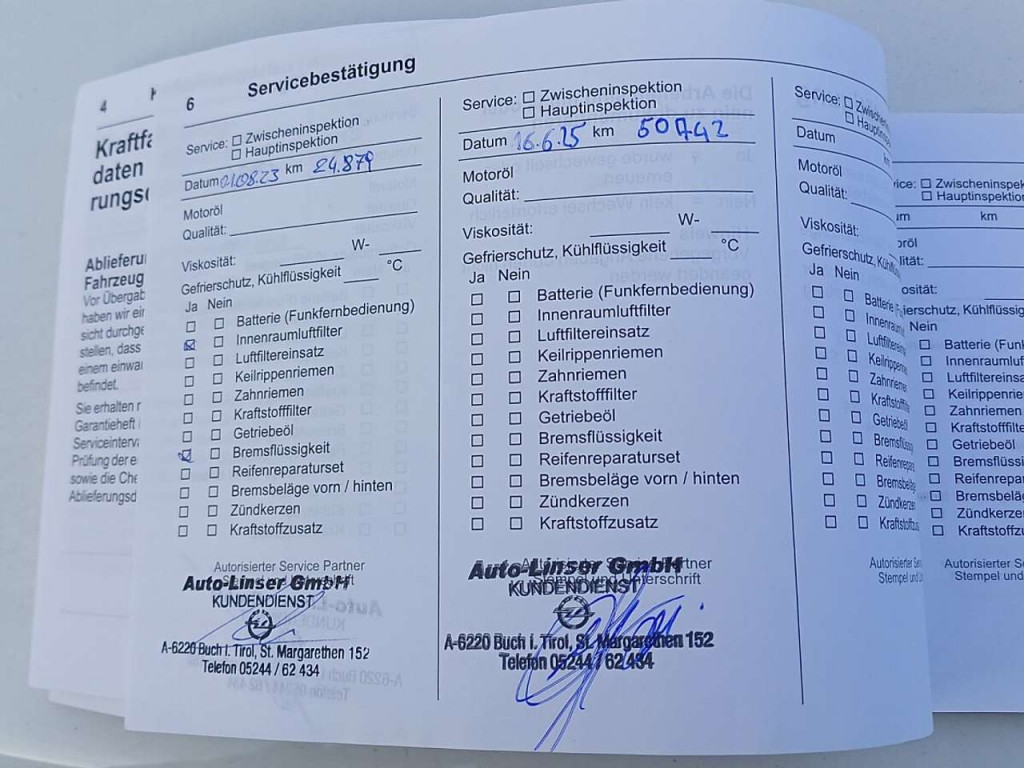 4
Kraftfa
daten
rungsd
Ablieferun
Fahrzeug
Vor Übergab
haben wir ein
sicht durchge
stellen, dass
einem einwa
befindet.
Sie erhalten
Garantieheft
Serviceinterv
Prüfung der e
sowie die Che
Ablieferungsd
6 Servicebestätigung
Service: ☐ Zwischeninspektion
☐ Hauptinspektion
Datum 01.08.23 km 24.879
Motoröl
Qualität:
Viskosität: W-
Gefrierschutz, Kühlflüssigkeit °C
Ja Nein
☐ ☐ Batterie (Funkfernbedienung)
☒ ☐ Innenraumluftfilter
☐ ☐ Luftfiltereinsatz
☐ ☐ Keilrippenriemen
☐ ☐ Zahnriemen
☐ ☐ Kraftstofffilter
☐ ☐ Getriebeöl
☒ ☐ Bremsflüssigkeit
☐ ☐ Reifenreparaturset
☐ ☐ Bremsbeläge vorn / hinten
☐ ☐ Zündkerzen
☐ ☐ Kraftstoffzusatz
Autorisierter Service Partner
Auto-Linser GmbH
KUNDENDIENST
A-6220 Buch i. Tirol, St. Margarethen 152
Telefon 05244 / 62 434
Service: ☐ Zwischeninspektion
☐ Hauptinspektion
Datum 16.6.25 km 50742
Motoröl
Qualität:
Viskosität: W-
Gefrierschutz, Kühlflüssigkeit °C
Ja Nein
☐ ☐ Batterie (Funkfernbedienung)
☐ ☐ Innenraumluftfilter
☐ ☐ Luftfiltereinsatz
☐ ☐ Keilrippenriemen
☐ ☐ Zahnriemen
☐ ☐ Kraftstofffilter
☐ ☐ Getriebeöl
☐ ☐ Bremsflüssigkeit
☐ ☐ Reifenreparaturset
☐ ☐ Bremsbeläge vorn / hinten
☐ ☐ Zündkerzen
☐ ☐ Kraftstoffzusatz
Autorisierter Service Partner
Stempel und Unterschrift
Auto-Linser GmbH
KUNDENDIENST
A-6220 Buch i. Tirol, St. Margarethen 152
Telefon 05244 / 62 434
Service: ☐ Zwischenin
☐ Hauptinspe
Datum
Motoröl
Qualität:
Viskosität:
Gefrierschutz, Kühl
Ja Nein
☐ ☐ Batterie
☐ ☐ Innenraum
☐ ☐ Luftfilterein
☐ ☐ Keilrippenrie
☐ ☐ Zahnriemen
☐ ☐ Kraftstofffilt
☐ ☐ Getriebeöl
☐ ☐ Bremsflüssig
☐ ☐ Reifenrepara
☐ ☐ Bremsbeläg
☐ ☐ Zündkerzen
☐ ☐ Kraftstoffzus
Autorisierter Ser
Stempel und U
vice: ☐ Zwischeninspek
☐ Hauptinspektion
um km
oröl
lität:
osität:
rierschutz, Kühlflüssig
Nein
☐ Batterie (Funk
☐ Innenraumluf
☐ Luftfiltereinsa
☐ Keilrippenrie
☐ Zahnriemen
☐ Kraftstofffilte
☐ Getriebeöl
☐ Bremsflüssi
☐ Reifenrepar
☐ Bremsbeläg
☐ Zündkerzen
☐ Kraftstoffzu
Autorisierter Se
Stempel und